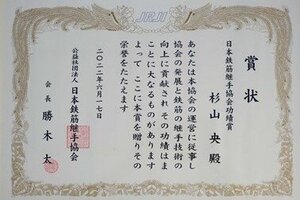 JRJI
賞状
日本鉄筋継手協会功績賞
杉山央殿
あなたは本協会の運営に従事し
協会の発展と鉄筋の継手技術の
向上に貢献され その功績はま
ことに大なるものがあります
よって ここに本賞を贈りその
栄誉をたたえます
二〇二二年六月一七日
公益社団法人
日本鉄筋継手協会
会長 勝木太